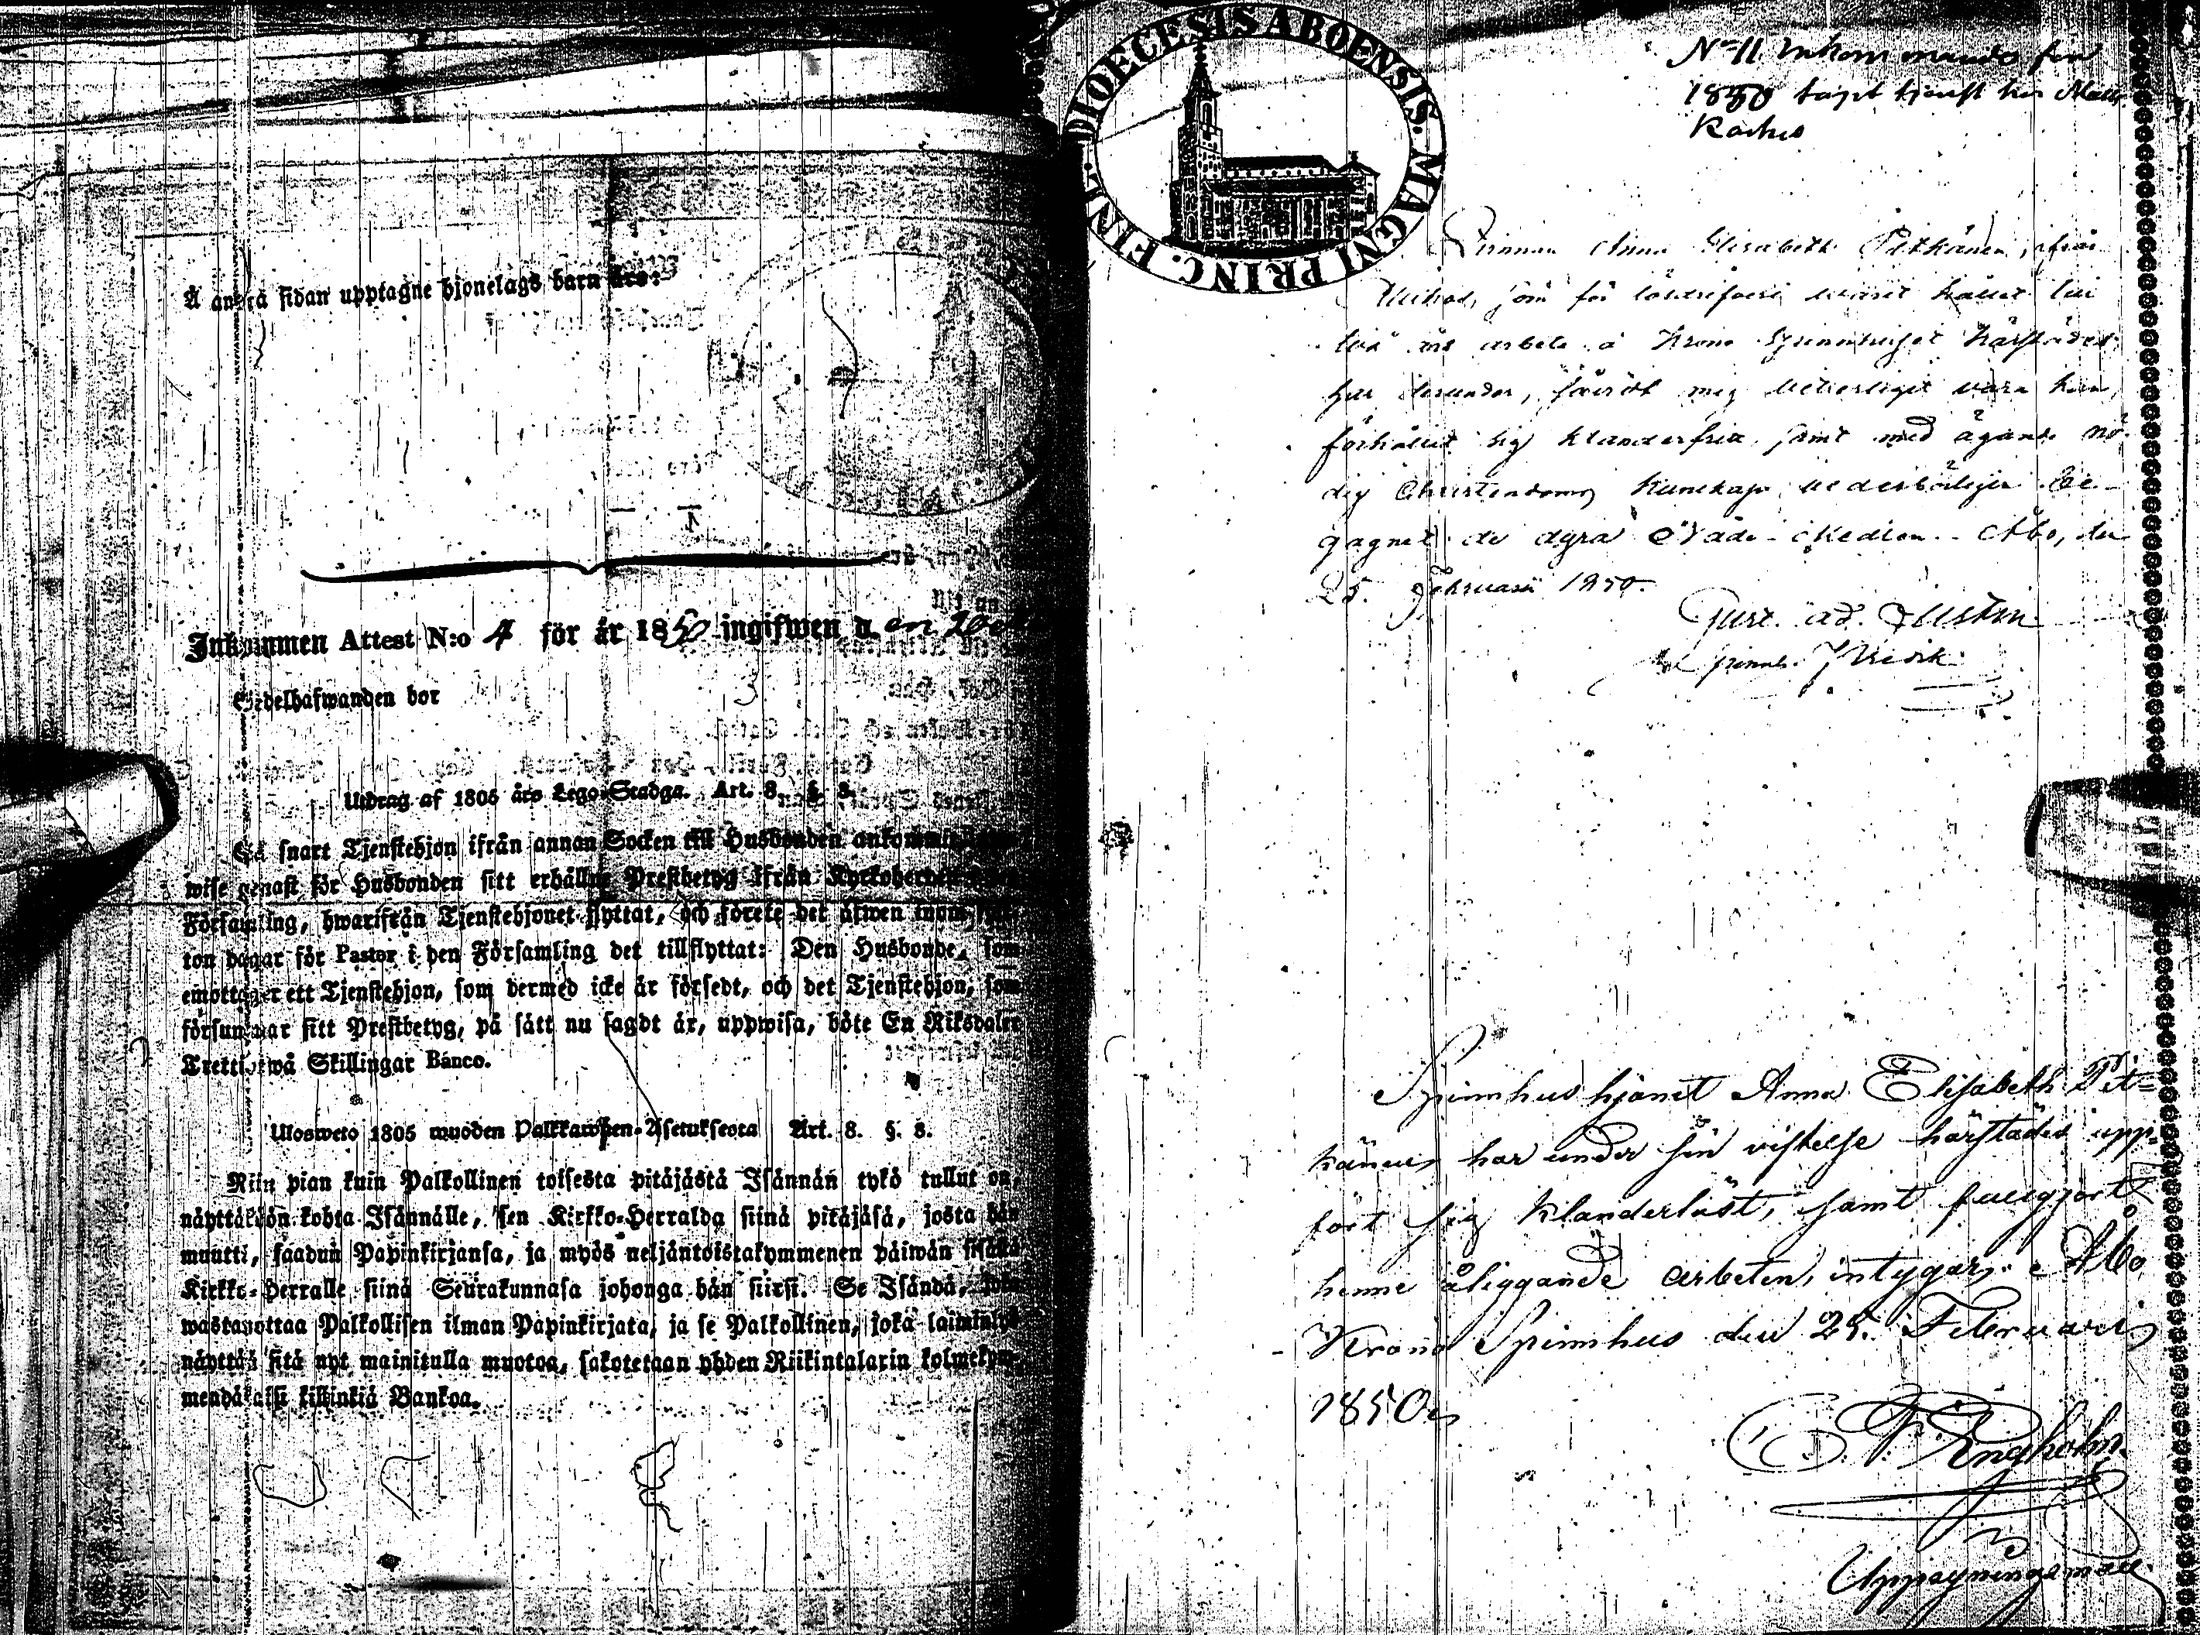 Å andra sidan upptagne hjonelags barn äro:
Inkommen Attest N:o 4 för år 1850 ingifwen d. en
Sedelhafwanden bor
Utdrag af 1805 års Lego-Stadga. Art. 8. §. 8.
Så snart Tjenstehjon ifrån annan Socken till Husbonden
wise genast för Husbonden sitt erhållna Prestbetyg ifrån
Församling, hwarifrån Tjenstehjonet flyttat, och förete det äfwen inom
ton dagar för Pastor i den Församling det tillflyttat: Den Husbonde, som
emottager ett Tjenstehjon, som dermed icke är försedt, och det Tjenstehjon, som
försummar sitt Prestbetyg, på sätt nu sagdt är, uppwisa, böte En Riksdaler
Trettiotwå Skillingar Banco.
Ulosweto 1805 wuoden Palkkawäen-Asetuksesta Art. 8. §. 8.
Niin pian kuin Palkollinen toisesta pitäjästä Isännän tykö tullut on,
näyttäköön kohta Isännälle, sen Kirkko-Herralda siinä pitäjäsä, josta hän
muutti, saadun Papinkirjansa, ja myös neljäntoistakymmenen päiwän sisällä
Kirkko-Herralle siinä Seurakunnasa johonga hän siirsi. Se Isändä, joka
wastanottaa Palkollisen ilman Papinkirjata, ja se Palkollinen, joka
näyttää sitä nyt mainitulla muotoa, sakotetaan yhden Riikintalarin kolmekym-
mendäkaksi killinkiä Bankoa.
DIOECESIS ABOENSIS. MAGNI PRINC. FINL.
No 11 Inkommande för
1850 tagit tjenst hos Matts
Qvinnan Anna Elisabeth Pitkänen, ifrån
som för
två års arbete å Krono Spinnhuset härstädes
har derunder, såvidt mig veterligit vara kan,
förhållit sig klanderfria, samt med ägande nö-
dig Christendoms kunskap vederbörligen be-
gagnat de dyra Nåde-Medlen. Åbo, den
25. Februarii 1850.
Spinnhushjonet Anna Elisabeth Pit-
känen har under sin vistelse härstädes upp-
fört sig klanderlöst, samt fullgjort
henne åliggande arbeten, intygar; Åbo
Krono Spinnhus den 25. Februarii
1850.
Engholm
Uppsyningsman